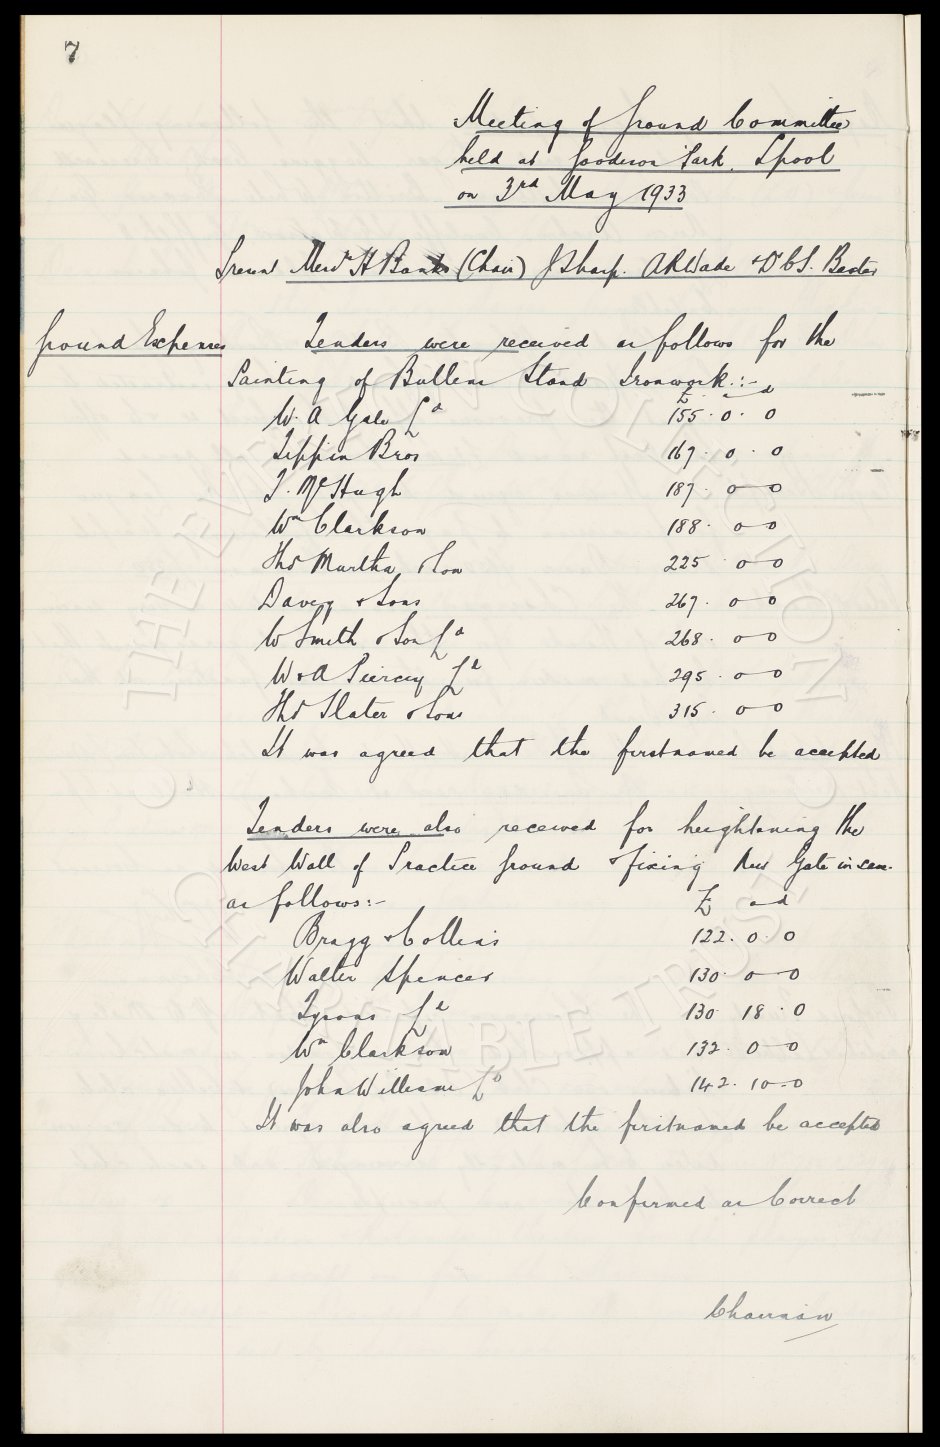 7
Meeting of Ground Committee
held at Goodison Park, L'pool
on 3rd May 1933
Present Messrs H Banks (Chair) J Sharp. A R Wade & Dr C S. Baxter
Ground Expenses
Tenders were received as follows for the
Painting of Bullens Stand Ironwork:-
£ s d
W. A Gale Ld 155. 0. 0
Tippin Bros 167. 0. 0
T. McHugh 187. 0 - 0
Wm Clarkson 188. 0 - 0
Thos Murtha & Son 225. 0 - 0
Davey & Sons 267. 0 - 0
W Smith & Son Ld 268. 0 - 0
W & A Piercey Ld 295. 0 - 0
Thos Slater & Sons 315. 0 - 0
It was agreed that the firstnamed be accepted
Tenders were also received for heightening the
West Wall of Practice Ground & fixing New Gate in same
as follows:-
£ s d
Bragg & Collins 122. 0. 0
Walter Spencer 130. 0 - 0
Tysons Ld 130 18. 0
Wm Clarkson 132. 0 - 0
John Williams Ld 142. 10 - 0
It was also agreed that the firstnamed be accepted
Confirmed as Correct
Chairman
© THE EVERTON COLLECTION
CHARITABLE TRUST